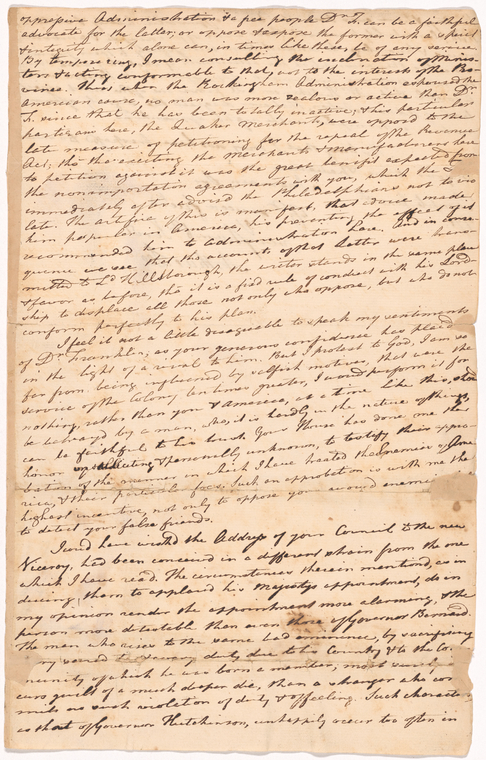 oppressive Administration & a free people Dr F. can be a faithful
advocate for the latter; or oppose & expose the former with a spirit
& integrity which alone can, in times like these, be of any service.
By temporizing, I mean consulting the inclination of Minis-
ters & acting conformable to that, not to the interests of the Pro-
vince. Thus, when the Rockingham Administration espoused the
American cause, no man was more zealous or active than Dr
F. since that he has been totally inactive; His particular
partizans here, the Quaker Merchants, were opposed to the
late measure of petitioning for the repeal of the Revenue
Act; tho the exciting the Merchants & Manufacturers here
to petition against it was the great benefit expected from
the nonimportation agreements with you, which the Dr
immediately after advised the Philadelphians not to vio
late. The artifice of this is manifest, that advice made
him popular in America, his preventing the effect of it
recommended him to administration here. And in conse
quence we see that tho the accounts of that letter were trans-
mitted to Ld Hillsborough, the writer stands in the same place
& favor as before, tho it is a fixd rule of conduct with his Lord-
ship to displace all those not only who oppose, but who do not
conform perfectly to his plan.
I feel it not a little disagreeable to speak my sentiments
of Dr Franklin; as your generous confidence has placd me
in the light of a rival to him. But I protest to God, I am so
far from being influenced by selfish motives, that were the
service of the Colony ten times greater, I woud perform it for
nothing, rather than you & America, at a time like this, shoud
be betrayd by a man, who, it is hardly in the nature of things,
can be faithful to his trust. Your House has done me the
honor unsolliciting & personally unknown, to testify their appro-
bation of the manner in which I have treated the Enemies of Ame
rica, & their particular foes. Such an approbation is with me the
highest incentive, not only to oppose your avowd enemies, but
to detect your false friends.
I coud have wishd the Address of your Council to the new
Viceroy, had been conceived in a different strain from the one
which I have read. The circumstances therein mentiond, as in
ducing them to applaud his Majestys appointment, do in
my opinion render the appointment more alarming, & the
person more detestable than even those of Governor Bernard.
The man who rises to the same bad eminence, by sacrificing
every sacred & every duty due to his Country, & to the Com
munity of which he was born a member, must surely in
curs guilt of a much deeper die, than a stranger who com
mits no such violation of duty & of feeling. Such characters
as that of Governor Hutchinson, unhappily occur too often in